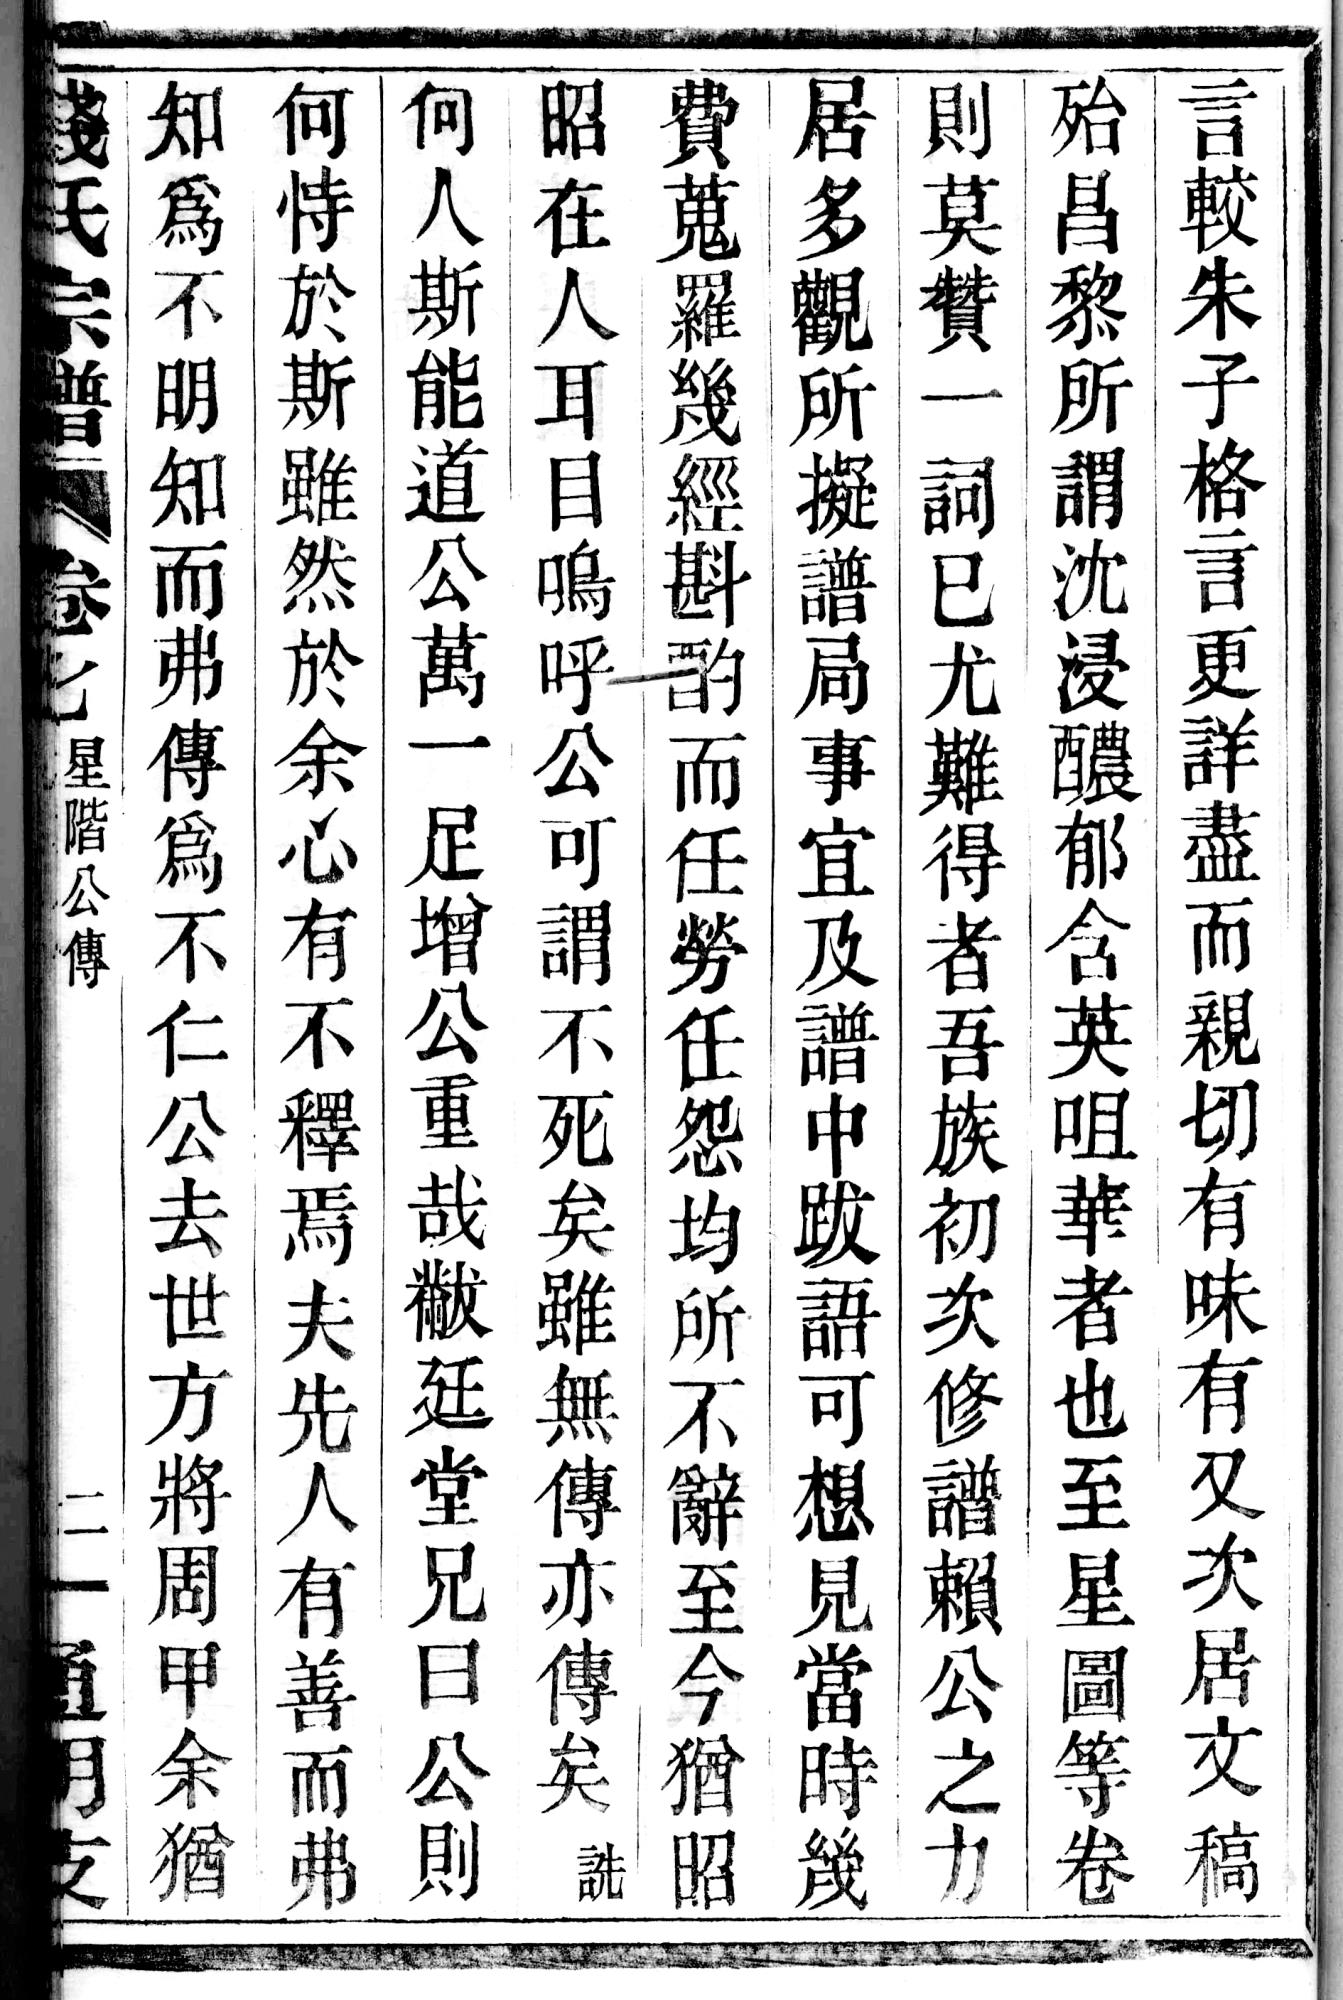 言較朱子格言更詳盡而親切有味有又次居文稿
殆昌黎所謂沈浸醲郁含英咀華者也至星圖等卷
則莫贊一詞已尤難得者吾族初次修譜賴公之力
居多觀所擬譜局事宜及譜中跋語可想見當時幾
費蒐羅幾經斟酌而任勞任怨均所不辭至今猶昭
昭在人耳目嗚呼公可謂不死矣雖無傳亦傳矣 詵
何人斯能道公萬一足增公重哉黻廷堂兄曰公則
何恃於斯雖然於余心有不釋焉夫先人有善而弗
知為不明知而弗傳為不仁公去世方將周甲余猶
錢氏宗譜 卷之七 星階公傳 二 通明支